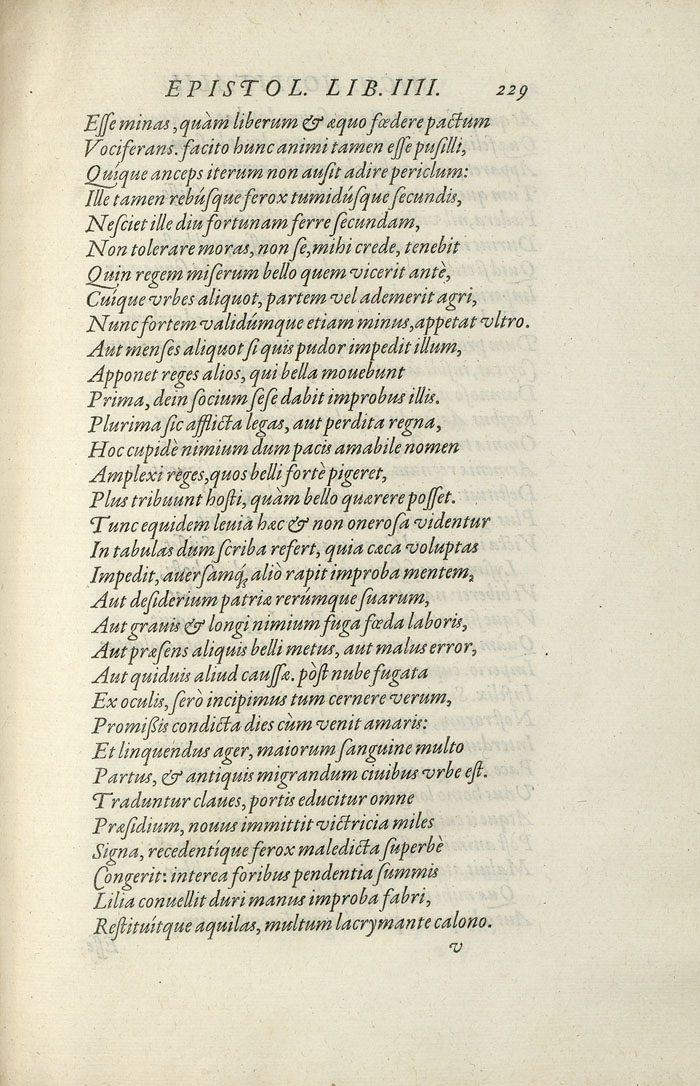 EPISTOL. LIB. IIII. 229
Esse minas, quàm liberum & æquo fœdere pactum
Vociferans. facito hunc animi tamen esse pusilli,
Quíque anceps iterum non ausit adire periclum:
Ille tamen rebúsque ferox tumidúsque secundis,
Nesciet ille diu fortunam ferre secundam,
Non tolerare moras, non se, mihi crede, tenebit
Quin regem miserum bello quem vicerit antè,
Cuíque vrbes aliquot, partem vel ademerit agri,
Nunc fortem validúmque etiam minus, appetat vltro.
Aut menses aliquot si quis pudor impedit illum,
Apponet reges alios, qui bella mouebunt
Prima, dein socium sese dabit improbus illis.
Plurima sic afflicta legas, aut perdita regna,
Hoc cupidè nimium dum pacis amabile nomen
Amplexi reges, quos belli fortè pigeret,
Plus tribuunt hosti, quàm bello quærere posset.
Tunc equidem leuia hæc & non onerosa videntur
In tabulas dum scriba refert, quia cæca voluptas
Impedit, auersamq́; aliò rapit improba mentem,
Aut desiderium patriæ rerúmque suarum,
Aut grauis & longi nimium fuga fœda laboris,
Aut præsens aliquis belli metus, aut malus error,
Aut quiduis aliud caussæ. pòst nube fugata
Ex oculis, serò incipimus tum cernere verum,
Promißis condicta dies cùm venit amaris:
Et linquendus ager, maiorum sanguine multo
Partus, & antiquis migrandum ciuibus vrbe est.
Traduntur claues, portis educitur omne
Præsidium, nouus immittit victricia miles
Signa, recedentíque ferox maledicta superbè
Congerit: interea foribus pendentia summis
Lilia conuellit duri manus improba fabri,
Restituítque aquilas, multum lacrymante calono.
v